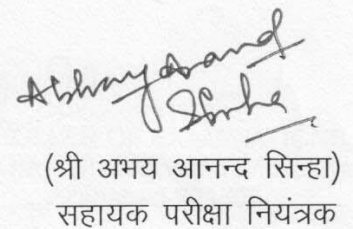 Abhay Anand
Sinha
(श्री अभय आनन्द सिन्हा)
सहायक परीक्षा नियंत्रक